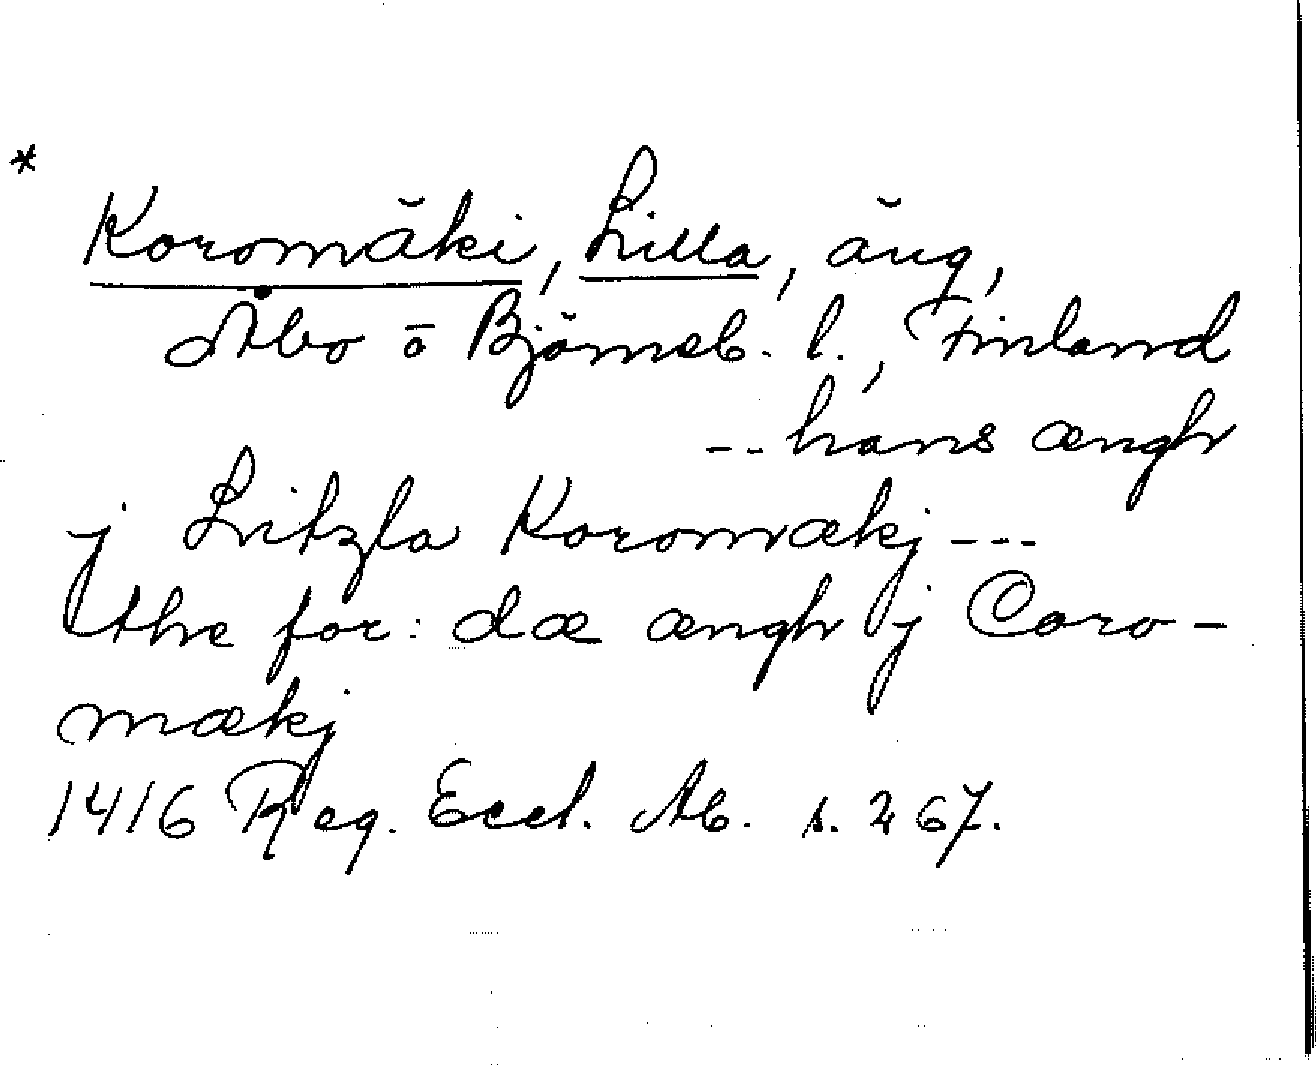 *
Koromäki, Lilla, äng,
Åbo o Björneb. l., Finland
-- hans ængh
j Litzla Koromækj ---
the for: dæ ængh j Coro-
mækj
1416 Reg. Eccl. Ab. s. 267.